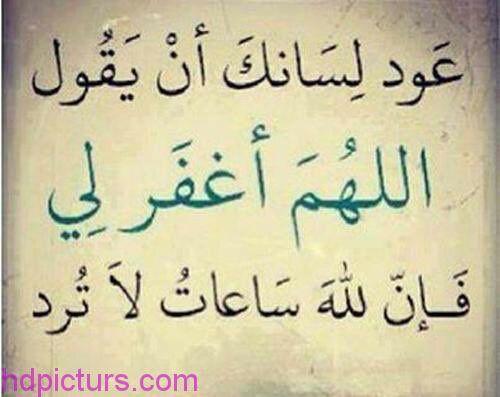 عَود لِسَانكَ أنْ يَقُول
اللهُمَ أغفَر لِي
فَإنّ للهَ سَاعاتُ لاَ تُرد
hdpicturs.com